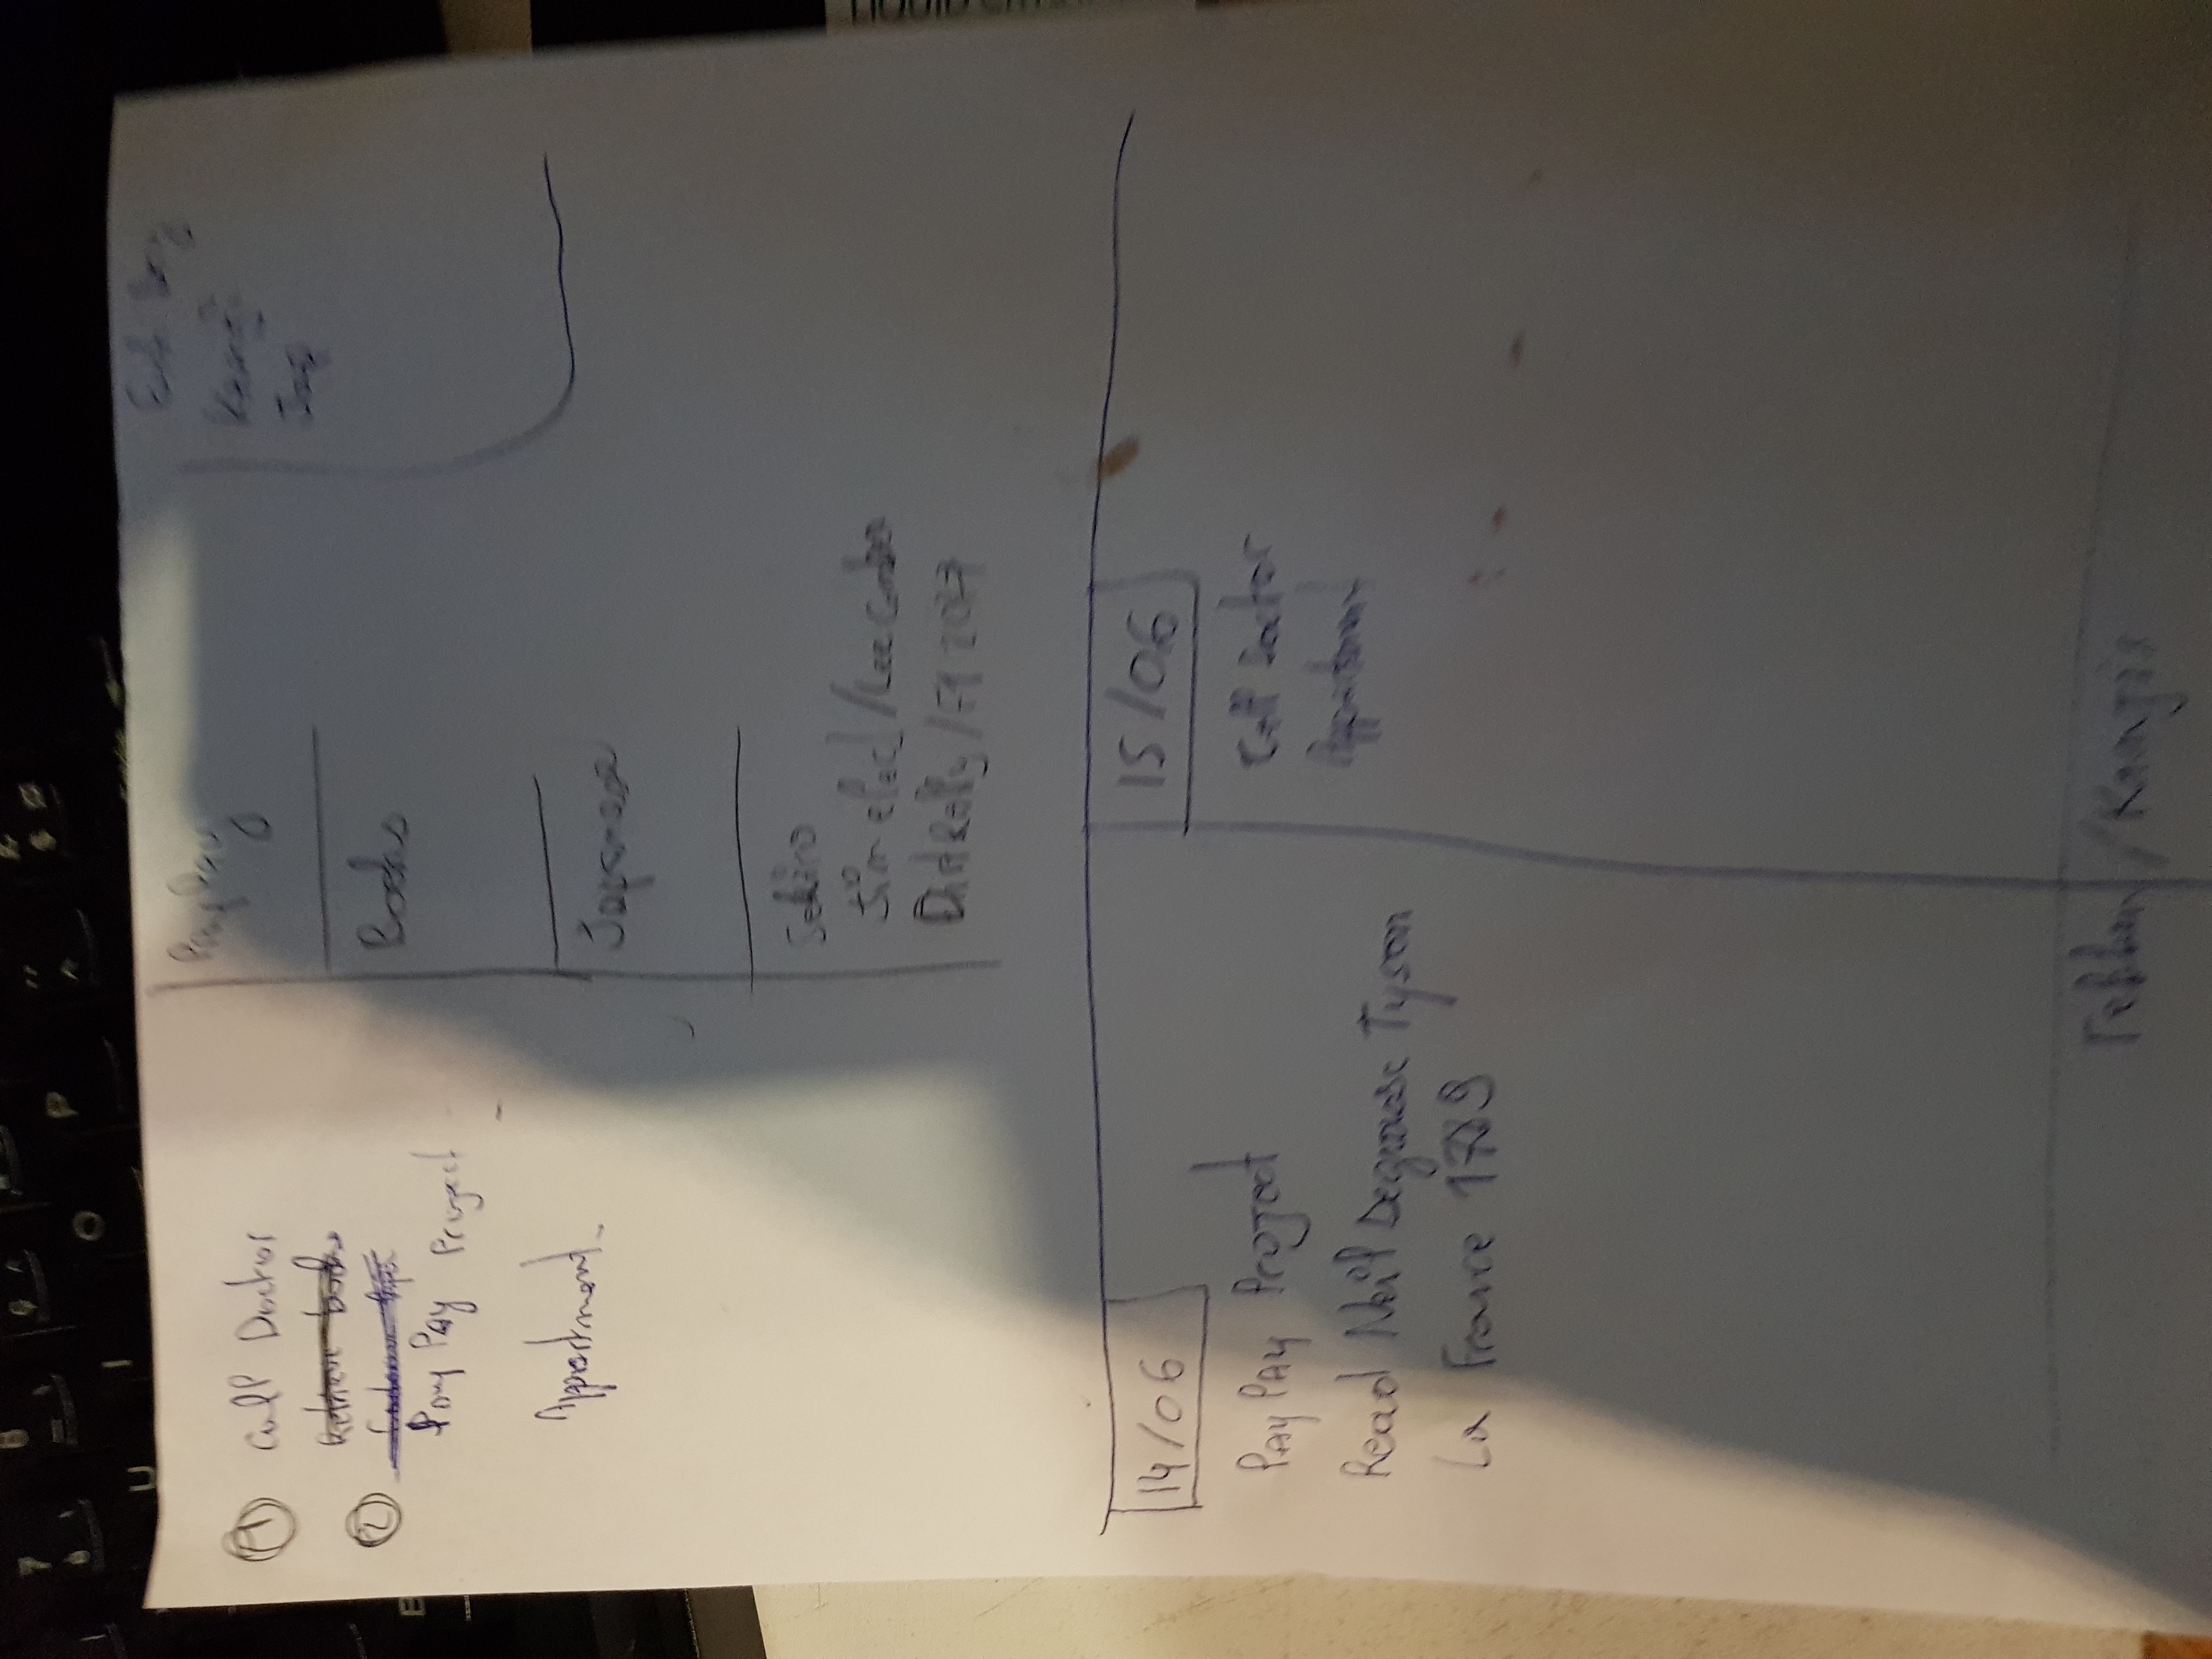 1 Call Doctor
Retrieve books
2
PayPay Project
Appartment
PayPay
Books
Japanese
Every
Kangi
Sekiro
Sim
DirtRally / F1 2017
14/06
PayPay Project
Read Neil Degrasse Tyson
La France 1789
15/06
Call Doctor
Appartment
/ Kangis